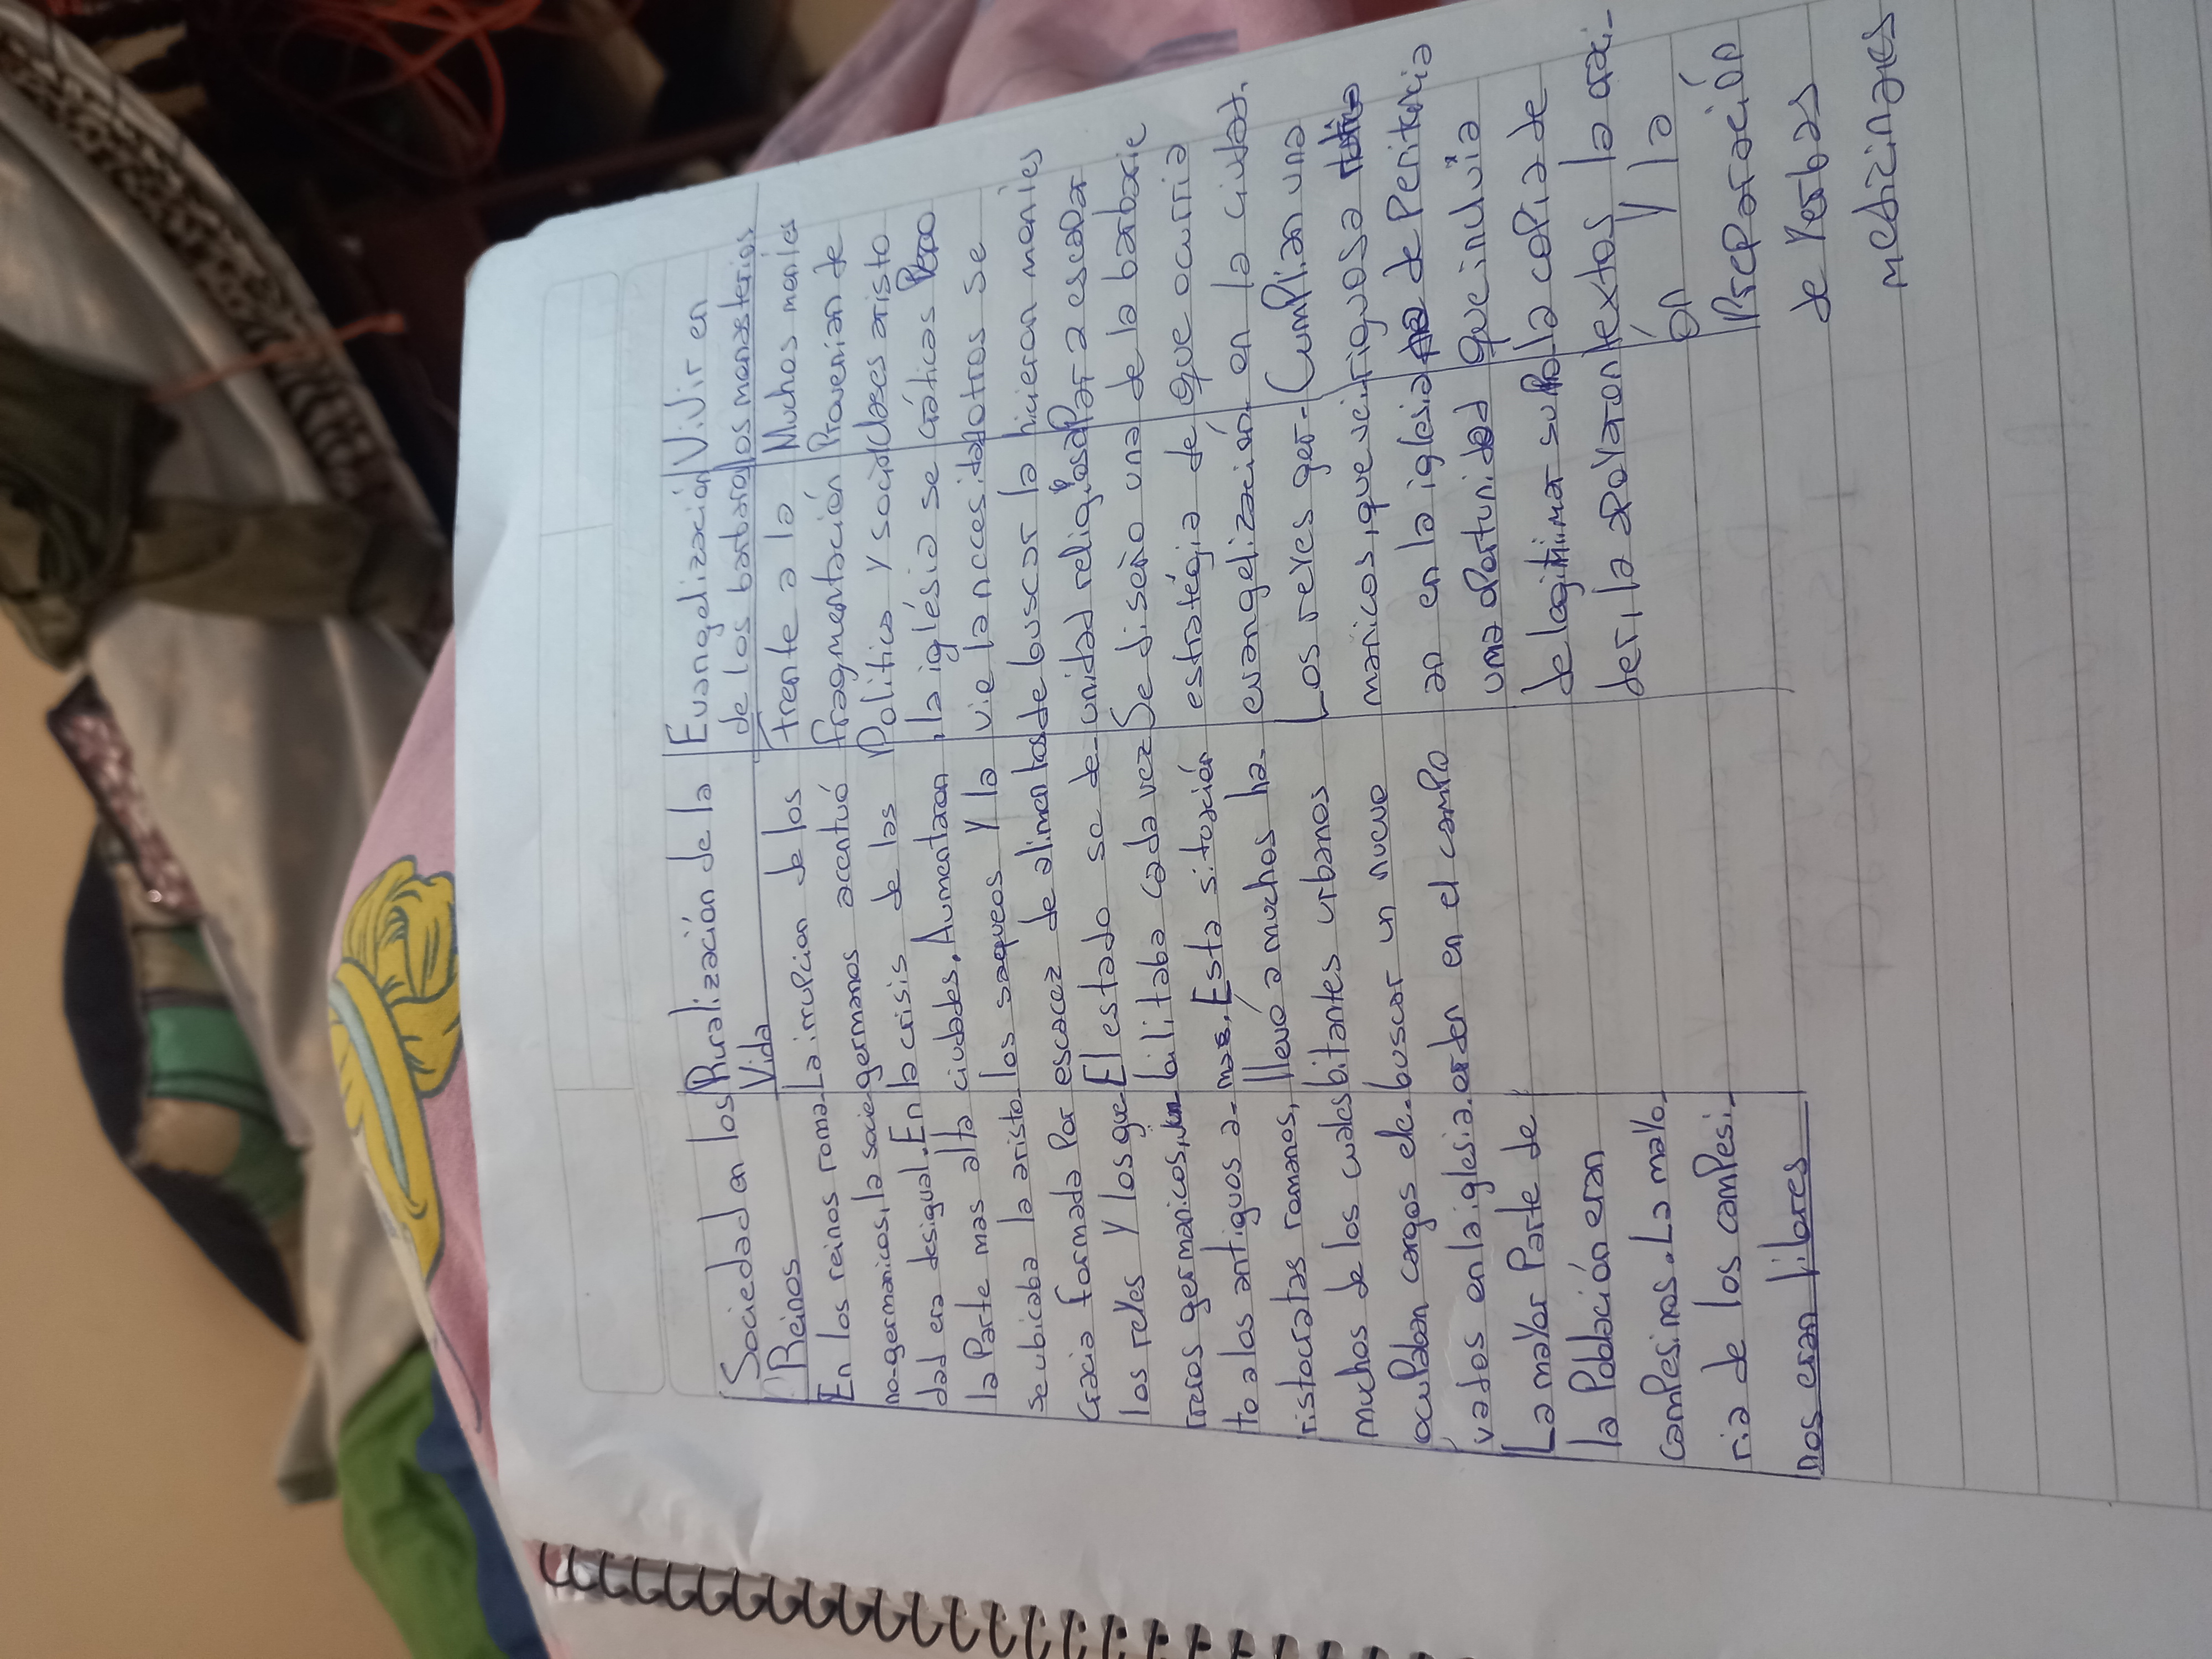 Sociedad en los
Reinos
En los reinos roma-
no-germanicos, la socie
dad era desigual. En
la Parte mas alta
se ubicaba la aristo
cracia formada Por
los reyes y los gue
rreros germanicos, jun
to a los antiguos a-
ristocratas romanos,
muchos de los cuales
ocuPaban cargos ele-
vados en la iglesia.
La mayor Parte de
la Población eran
camPesinos. La mayo
ria de los camPesi-
nos eran libres
Ruralización de la
Vida
La irruPcion de los
germanos accentuó
la crisis de las
ciudades. Aumentaron
los saqueos y la
escacez de alimentos
El estado se de-
bilitaba cada vez
mas. Esta situación
llevó a muchos ha-
bitantes urbanos
buscar un nuevo
orden en el camPo
Evangelización
de los barbaros
frente a la
fragmentación
Politica y social
, la iglésia se
vie la nacesidad
de buscar la
unidad religiosa
Se diseño una
estratégia de
evangelización.
Los reyes ger-
manicos, que veci
an en la iglesia
uma oPortunidad
de lagitimar su Po
der, la aPoyaron
Vivir en
los monasterios
Muchos monjes
Provenian de
clases aristo
cráticas Pero
otros se
hicieron monjes
Para escaPar
de la barbarie
que ocurria
en la ciudad.
CumPlian una
riguosa
de Penitencia
que incluvia
la coPia de
textos la oraci-
ón y la
PreParación
de Yerbas
medicinales